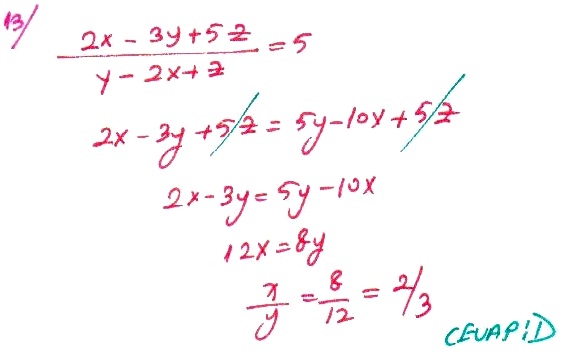 13/
2x - 3y + 5z / y - 2x + z = 5
2x - 3y + 5z = 5y - 10x + 5z
2x - 3y = 5y - 10x
12x = 8y
x/y = 8/12 = 2/3
CEVAP: D